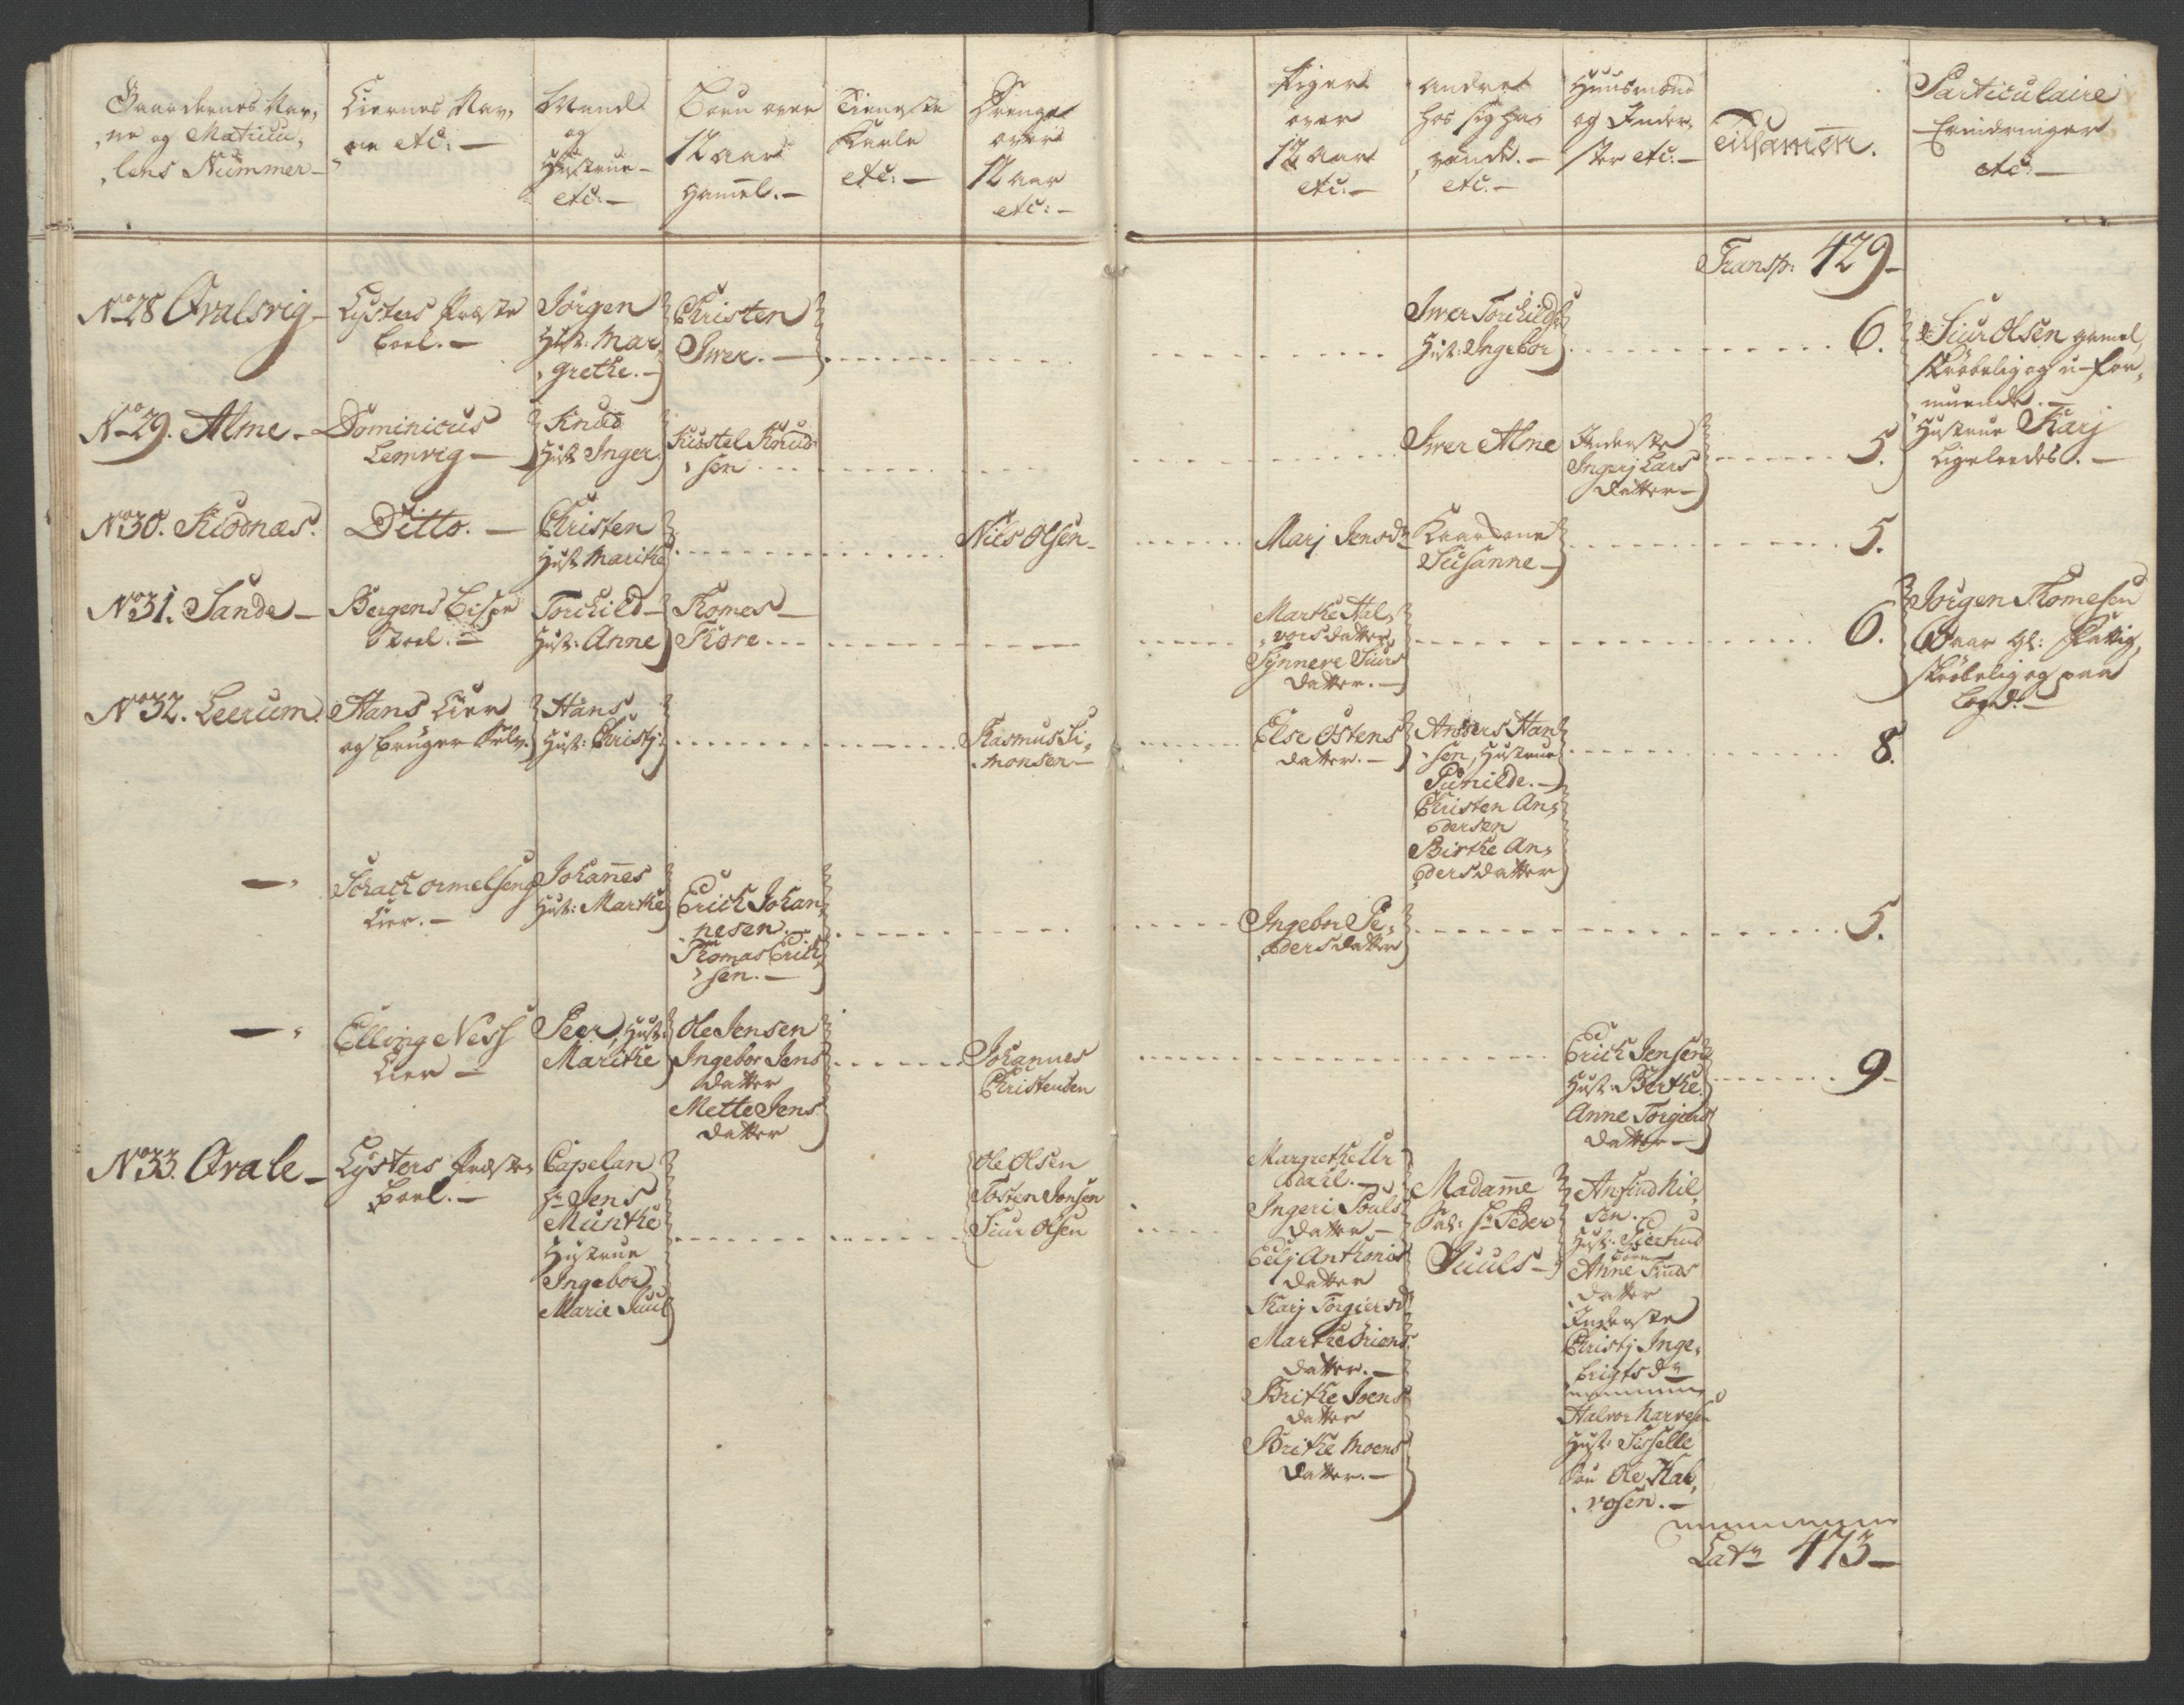 Gaardernes Nav,
ne og Matricu,
lens Nummer
Eiernes Nav,
ne etc:
Mand
og
Hustrue
etc:
Børn over
12 aar
gamel.
Tieneste
Karle
etc:
Drenge
over
12 aar
etc:
Piger
over
12 aar
etc:
andre
hos sig ha,
vende.
etc.
Huusmænd
og Inder,
ster etc:
Tilsamen.
Particulaire
Erindringer
etc:
Transp: 429
No 28 Qvalsvig
Lysters Præste
boel.
Jørgen
Hust: Mar
grethe.
Christen
Iver.
Iver Torchilds:
Hust: Ingebor
6.
Siur Olsen gamel,
skrøbelig og u-for,
muende.
Hustrue Karj
ligeleedes.
No 29. Alme
Dominicus
Lemvig
Knud
Hust Inger
Kristel Knud
sen
Iver Alme
Inderste
Ingerj Lars
datter
5.
No 30. Kiodnæs.
Ditto.
Christen
Hust Marithe
Nils Olsen
Marj Jensdr
Susanne
5.
No 31. Sande
Bergens Bispe
Stoel.
Torchild
Hust: Anne
Thomes
Thore
Marthe Hal,
vorsdatter,
Synneve Siurs
datter.
6.
Jørgen Thomesen
aar gl: fattig,
skrøbelig og paa
Lægd.
No 32. Leerum.
Hans Eier
og bruger selv.
Hans
Hust: Christj:
Rasmus Si,
monsen
Else Ostens
datter.
Anders Han
sen, Hustrue
Gunilde.
Christen An,
dersen
Birthe An,
dersdatter
8.
Schack ormelseng
Eier.
Johannes
Hust: Marthe
Erich Johan
nesen.
Thomas Erich
sen.
Ingebor Pe,
dersdatter
5.
Elling Ness
Eier
Peer, Hust:
Marithe
Ole Jensen
Ingebor Jens
datter
Mette Jens
datter
Johannes
Christensen
Erich Jensen
Hust: Berthe
Anne Torgiers
datter
9
No 33. Qvale
Lysters Præste,
boel.
Capelan
Hr Jens
Munthe
Hustrue
Ingebor
Marie Juul
Ole Olsen
Tosten Jonsen
Siur Olsen
Margrethe Ur
dahl.
Ingeri Pouls
datter
Eelj Anthonis
datter
Karj Torgiersdr
Marthe Briens
datter.
Brithe Joens
datter
Brithe Moens
datter.
Madame
Sal: Hr Peder
Juuls
Anfind Nil
sen.
Hust: Siertrud
børn
Anne Finds
datter
Inderste
Christj Inge,
brigtsdr
Halvor Narvesen
Hust: Sisselle
Søn Ole Hal,
vosen.
Latr 473